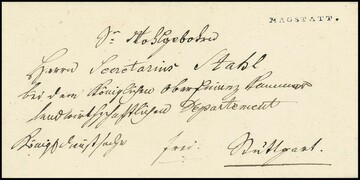 MAGSTATT.
Sr Wohlgeboren
Herrn Secretarius Stahl
bei dem Königlichen Oberfinanz Kammer
landwirthschaftlichen Departement
frei. Stuttgart.